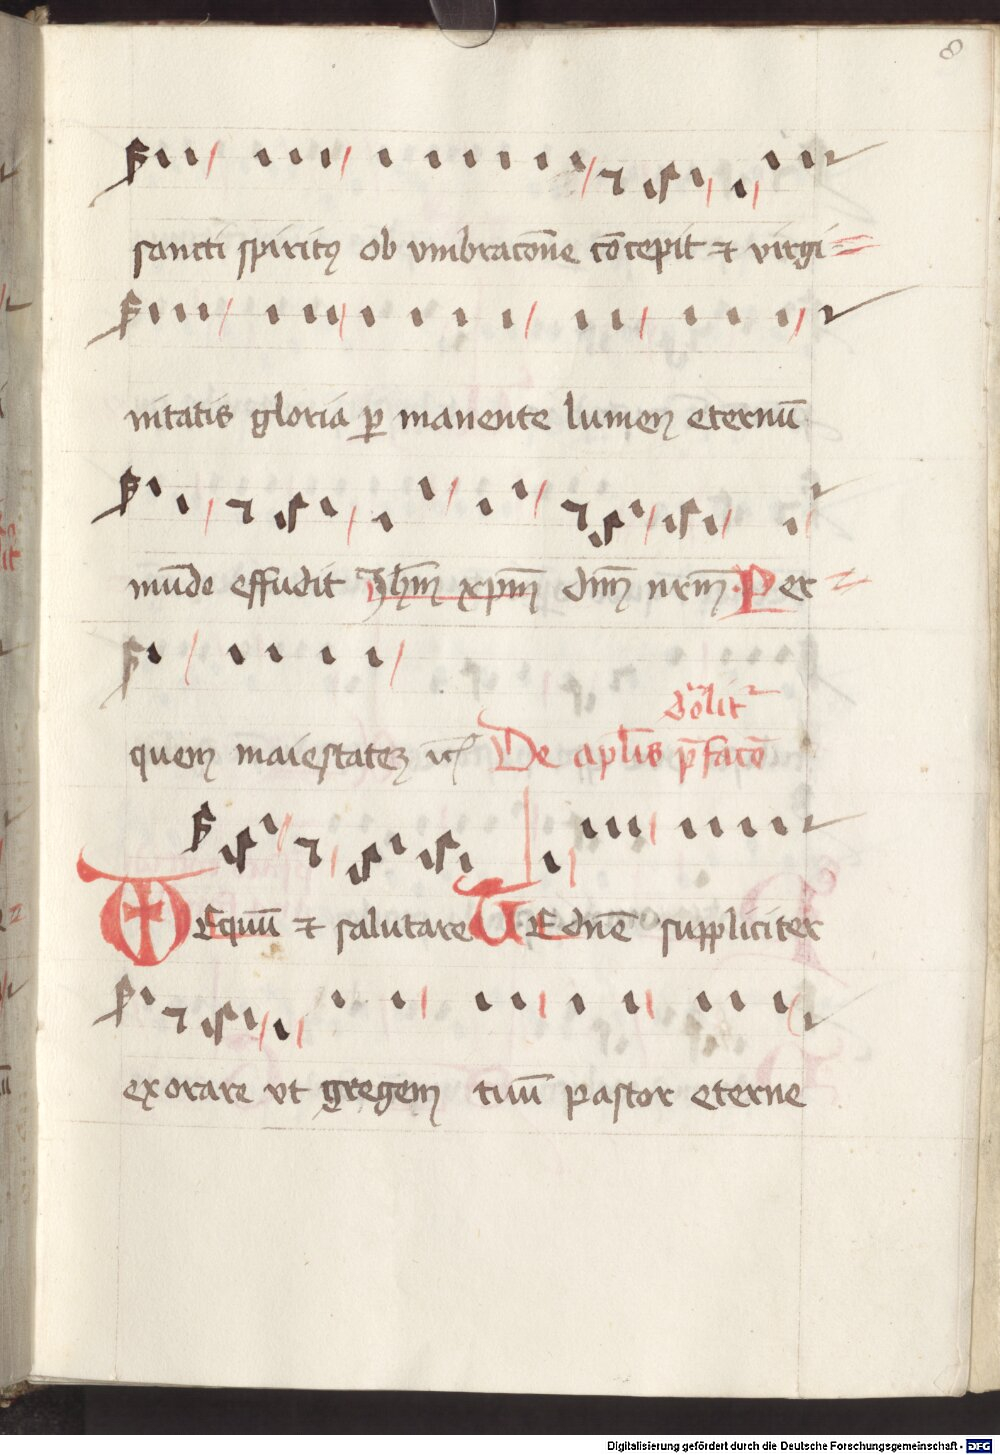 8
sancti spiritꝯ ob vmbracōne cōcepit ⁊ virgi=
nitatis gloria ꝑ manente lumen eternū
mūdo effudit Jhm̄ xpm̄ dnm̄ nr̄m Per
quem maiestatem
De aplīs p̄facō
Equū ⁊ salutare TE dnē suppliciter
exorare vt gregem tuū pastor eterne
Digitalisierung gefördert durch die Deutsche Forschungsgemeinschaft - DFG